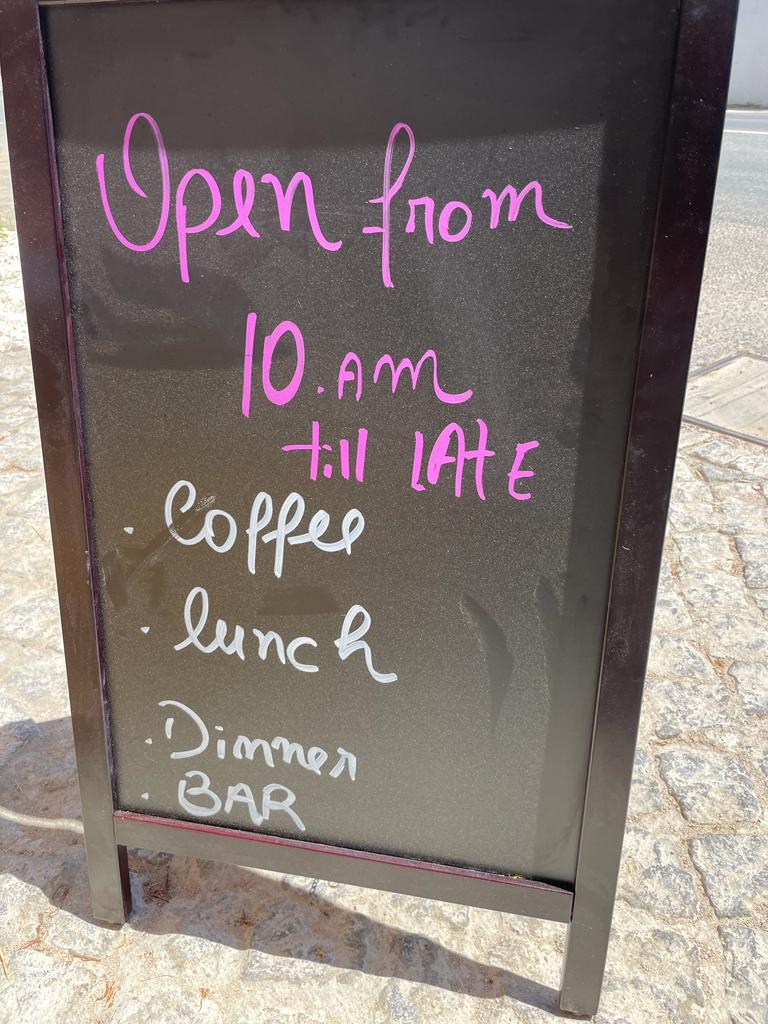 Open from
10.am
till LAtE
. Coffee
. lunch
. Dinner
. BAR